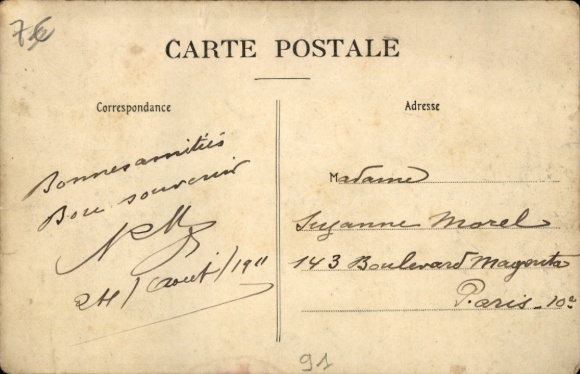 7€
CARTE POSTALE
Correspondance
Bonnes amitiés
Bon souvenir
24/août/1911
Adresse
Madame
Suzanne Morel
143 Boulevard Magenta
Paris-10e
91